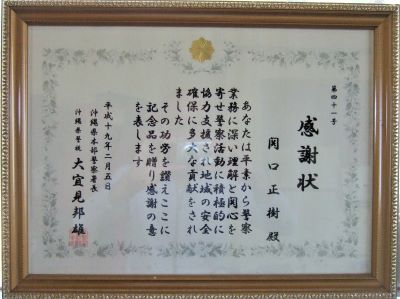 第四十一号
感謝状
関口正樹殿
あなたは平素から警察
業務に深い理解と関心を
寄せ警察活動に積極的に
協力支援され地域の安全
確保に多大な貢献をされ
ました
その功労を讃えここに
記念品を贈り感謝の意
を表します
平成十九年二月五日
沖縄県本部警察署長
沖縄県警視 大宜見邦雄